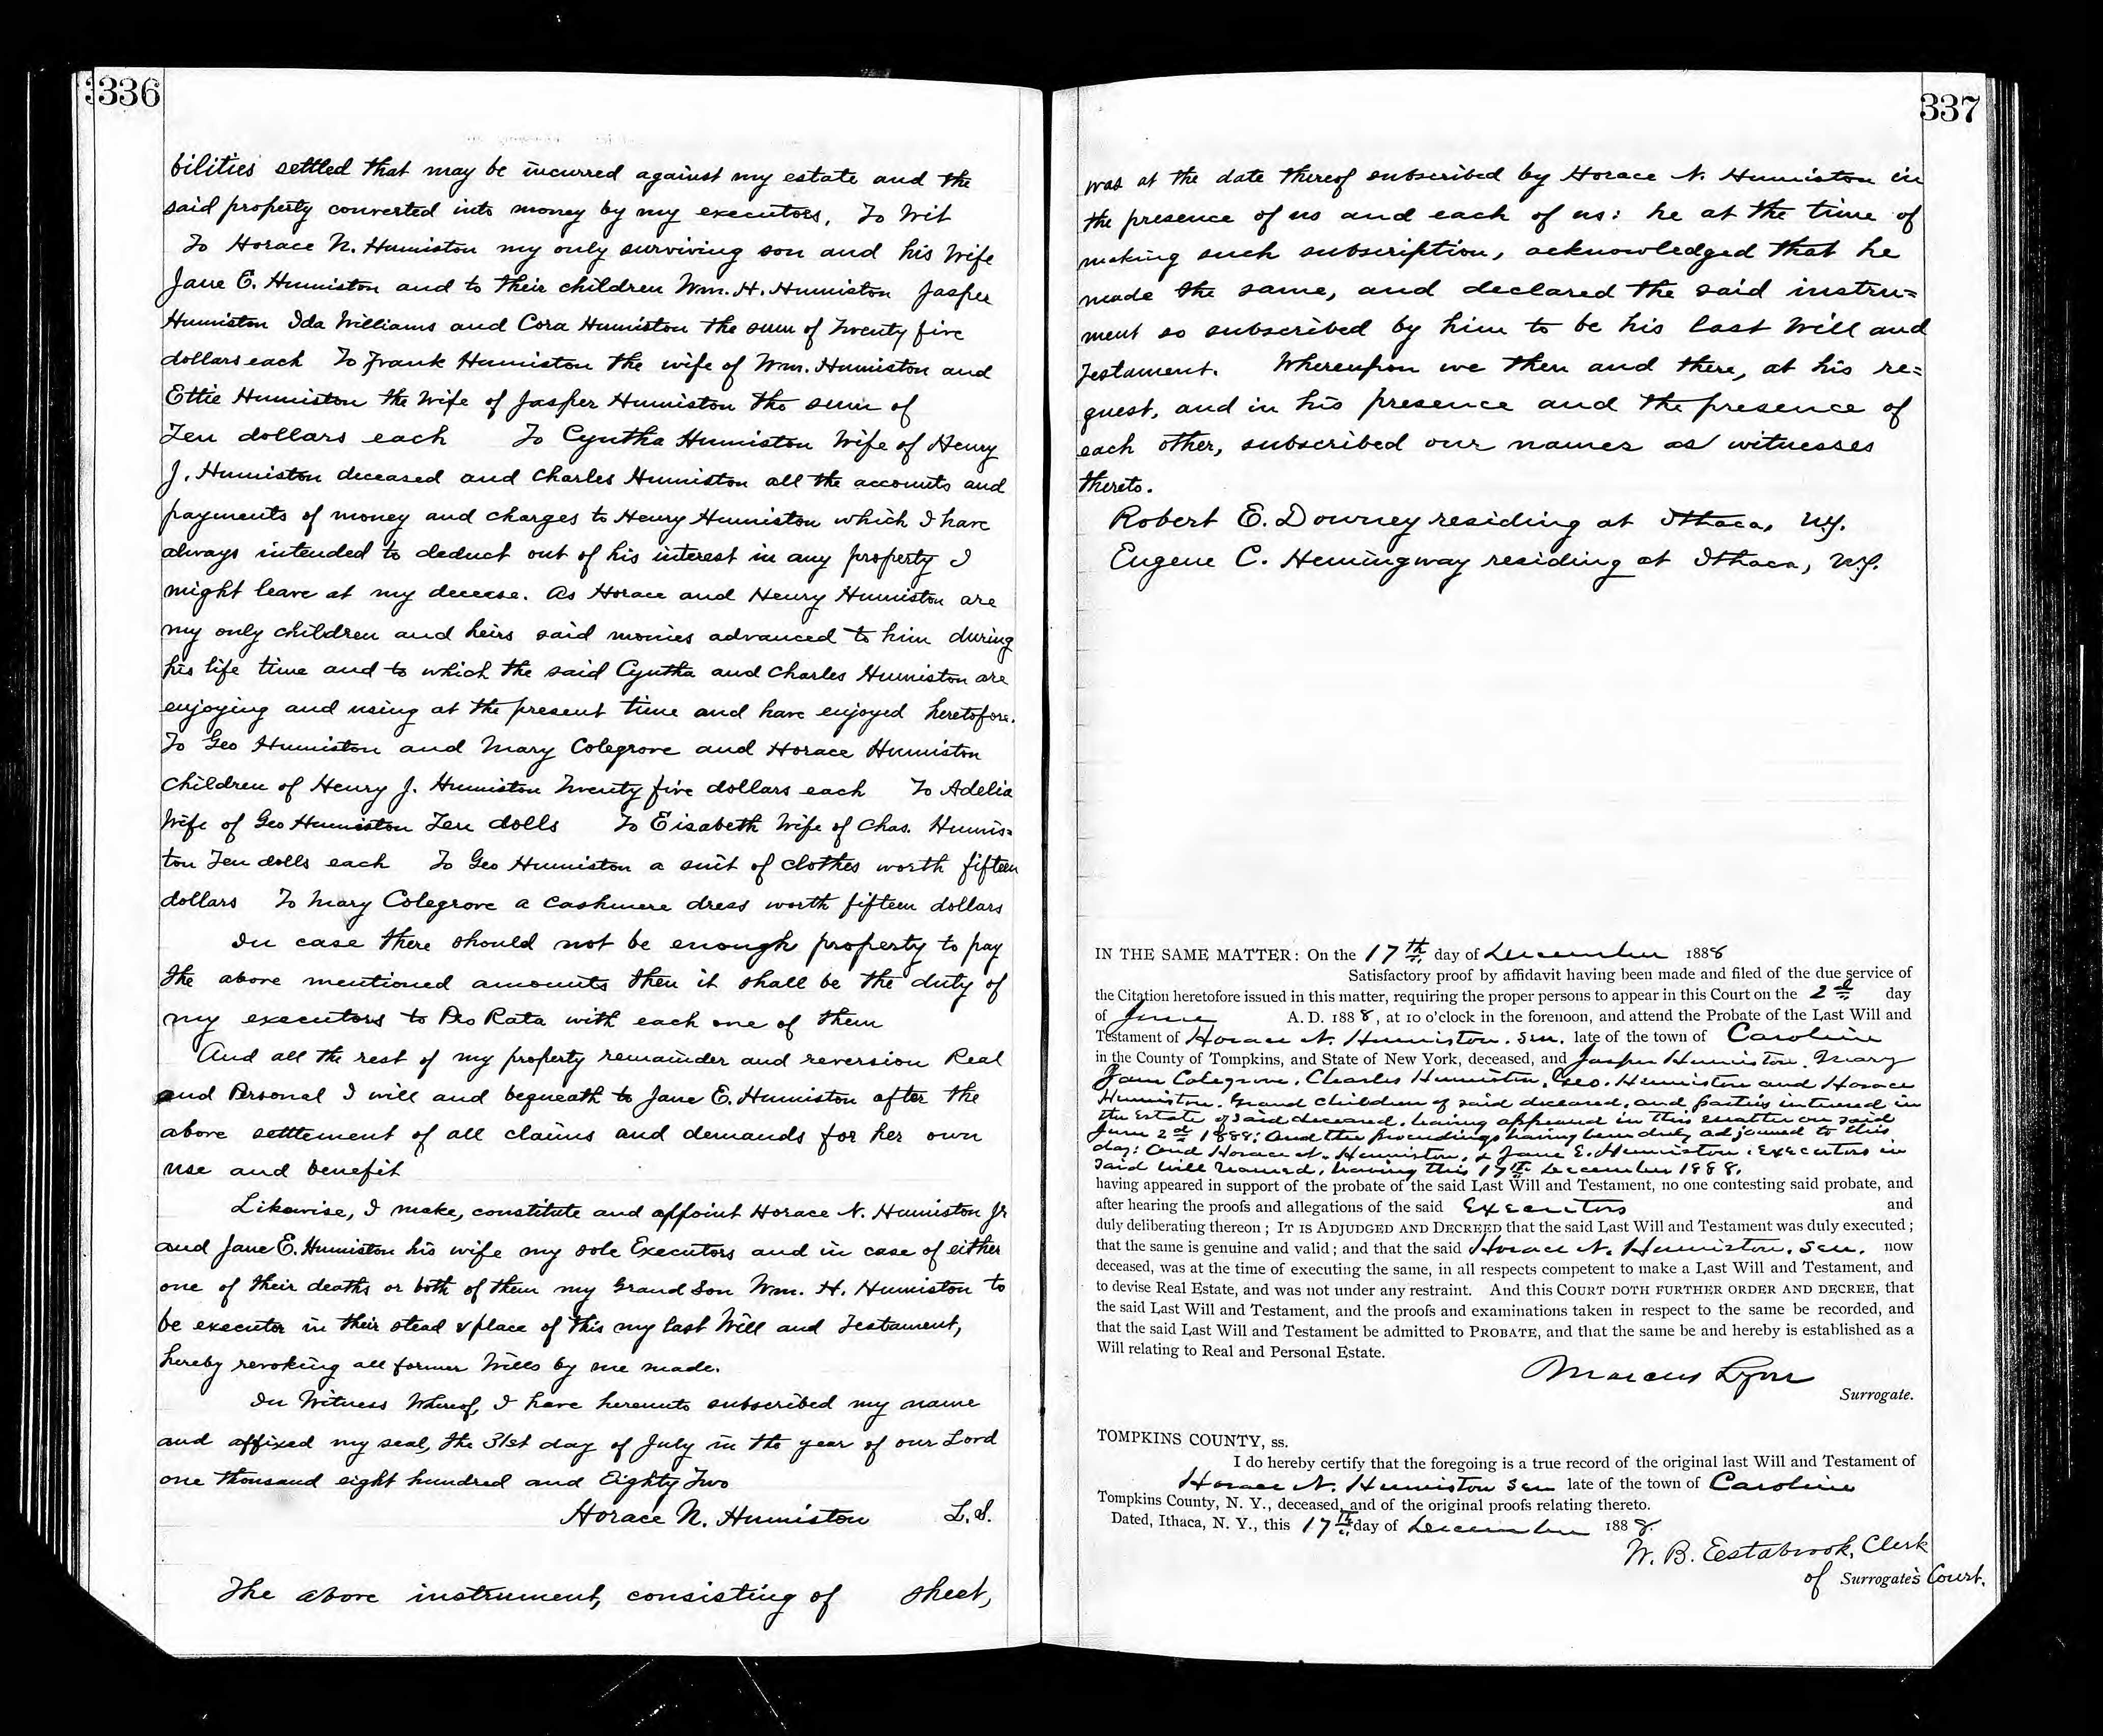 336
bilities settled that may be incurred against my estate and the
said property converted into money by my executors, To Wit
To Horace N. Humiston my only surviving son and his Wife
Jane E. Humiston and to their children Wm. H. Humiston Jasper
Humiston Ida Williams and Cora Humiston the sum of Twenty five
dollars each To Frank Humiston the wife of Wm. Humiston and
Ettie Humiston the Wife of Jasper Humiston the sum of
Ten dollars each To Cyntha Humiston Wife of Henry
J. Humiston deceased and Charles Humiston all the accounts and
payments of money and charges to Henry Humiston which I have
always intended to deduct out of his interest in any property I
might leave at my decease. As Horace and Henry Humiston are
my only children and heirs said monies advanced to him during
his life time and to which the said Cyntha and Charles Humiston are
enjoying and using at the present time and have enjoyed heretofore.
To Geo Humiston and Mary Colegrove and Horace Humiston
Children of Henry J. Humiston Twenty five dollars each To Adelia
Wife of Geo Humiston Ten dolls To Eisabeth Wife of Chas. Humis=
ton Ten dolls each To Geo Humiston a suit of clothes worth fifteen
dollars To Mary Colegrove a Cashmere dress worth fifteen dollars
In case there should not be enough property to pay
the above mentioned amounts then it shall be the duty of
my executors to Pro Rata with each one of them
And all the rest of my property remainder and reversion Real
and Personal I will and bequeath to Jane E. Humiston after the
above settlement of all claims and demands for her own
use and benefit
Likewise, I make, constitute and appoint Horace N. Humiston Jr
and Jane E. Humiston his wife my sole Executors and in case of either
one of their deaths or both of them my Grand Son Wm. H. Humiston to
be executor in their stead & place of this my last Will and Testament,
hereby revoking all former Wills by me made.
In Witness Whereof, I have hereunto subscribed my name
and affixed my seal, the 31st day of July in the year of our Lord
one thousand eight hundred and Eighty Two
Horace N. Humiston L. S.
The above instrument, consisting of sheet,
337
was at the date thereof subscribed by Horace N. Humiston in
the presence of us and each of us: he at the time of
making such subscription, acknowledged that he
made the same, and declared the said instru=
ment so subscribed by him to be his last Will and
Testament. Whereupon we then and there, at his re=
quest, and in his presence and the presence of
each other, subscribed our names as witnesses
thereto.
Robert E. Downey residing at Ithaca, N.Y.
Eugene C. Hemingway residing at Ithaca, N.Y.
IN THE SAME MATTER: On the 17th day of December 1888
Satisfactory proof by affidavit having been made and filed of the due service of
the Citation heretofore issued in this matter, requiring the proper persons to appear in this Court on the 2d day
of June A. D. 1888, at 10 o'clock in the forenoon, and attend the Probate of the Last Will and
Testament of Horace N. Humiston. Sen. late of the town of Caroline
in the County of Tompkins, and State of New York, deceased, and Jasper Humiston. Mary
Jane Colegrove. Charles Humiston. Geo. Humiston and Horace
Humiston. Grand children of said deceased, and parties interested in
the Estate of said deceased. having appeared in this matter on said
June 2d 1888: And the proceedings having been duly adjourned to this
day: And Horace N. Humiston, & Jane E. Humiston. Executors in
said will named. having this 17th December 1888.
having appeared in support of the probate of the said Last Will and Testament, no one contesting said probate, and
after hearing the proofs and allegations of the said Executors and
duly deliberating thereon; IT IS ADJUDGED AND DECREED that the said Last Will and Testament was duly executed;
that the same is genuine and valid; and that the said Horace N. Humiston. Sen. now
deceased, was at the time of executing the same, in all respects competent to make a Last Will and Testament, and
to devise Real Estate, and was not under any restraint. And this COURT DOTH FURTHER ORDER AND DECREE, that
the said Last Will and Testament, and the proofs and examinations taken in respect to the same be recorded, and
that the said Last Will and Testament be admitted to PROBATE, and that the same be and hereby is established as a
Will relating to Real and Personal Estate.
Marcus Lyon
Surrogate.
TOMPKINS COUNTY, ss.
I do hereby certify that the foregoing is a true record of the original last Will and Testament of
Horace N. Humiston Sen late of the town of Caroline
Tompkins County, N. Y., deceased, and of the original proofs relating thereto.
Dated, Ithaca, N. Y., this 17th day of December 1888.
W. B. Eestabrook, Clerk
of Surrogate's Court.